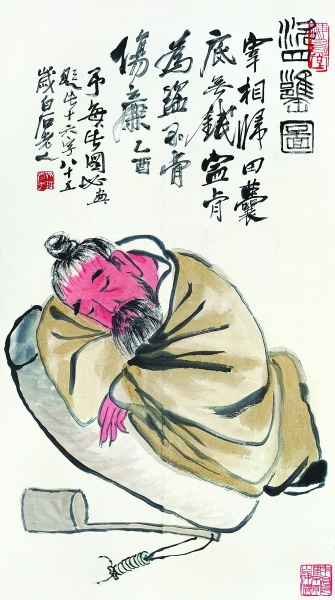 盜甕圖
宰相歸田囊
底无錢寧肯
為盜不肯
傷廉乙酉
予每作圖必與
題此十六字八十五
歲白石老人